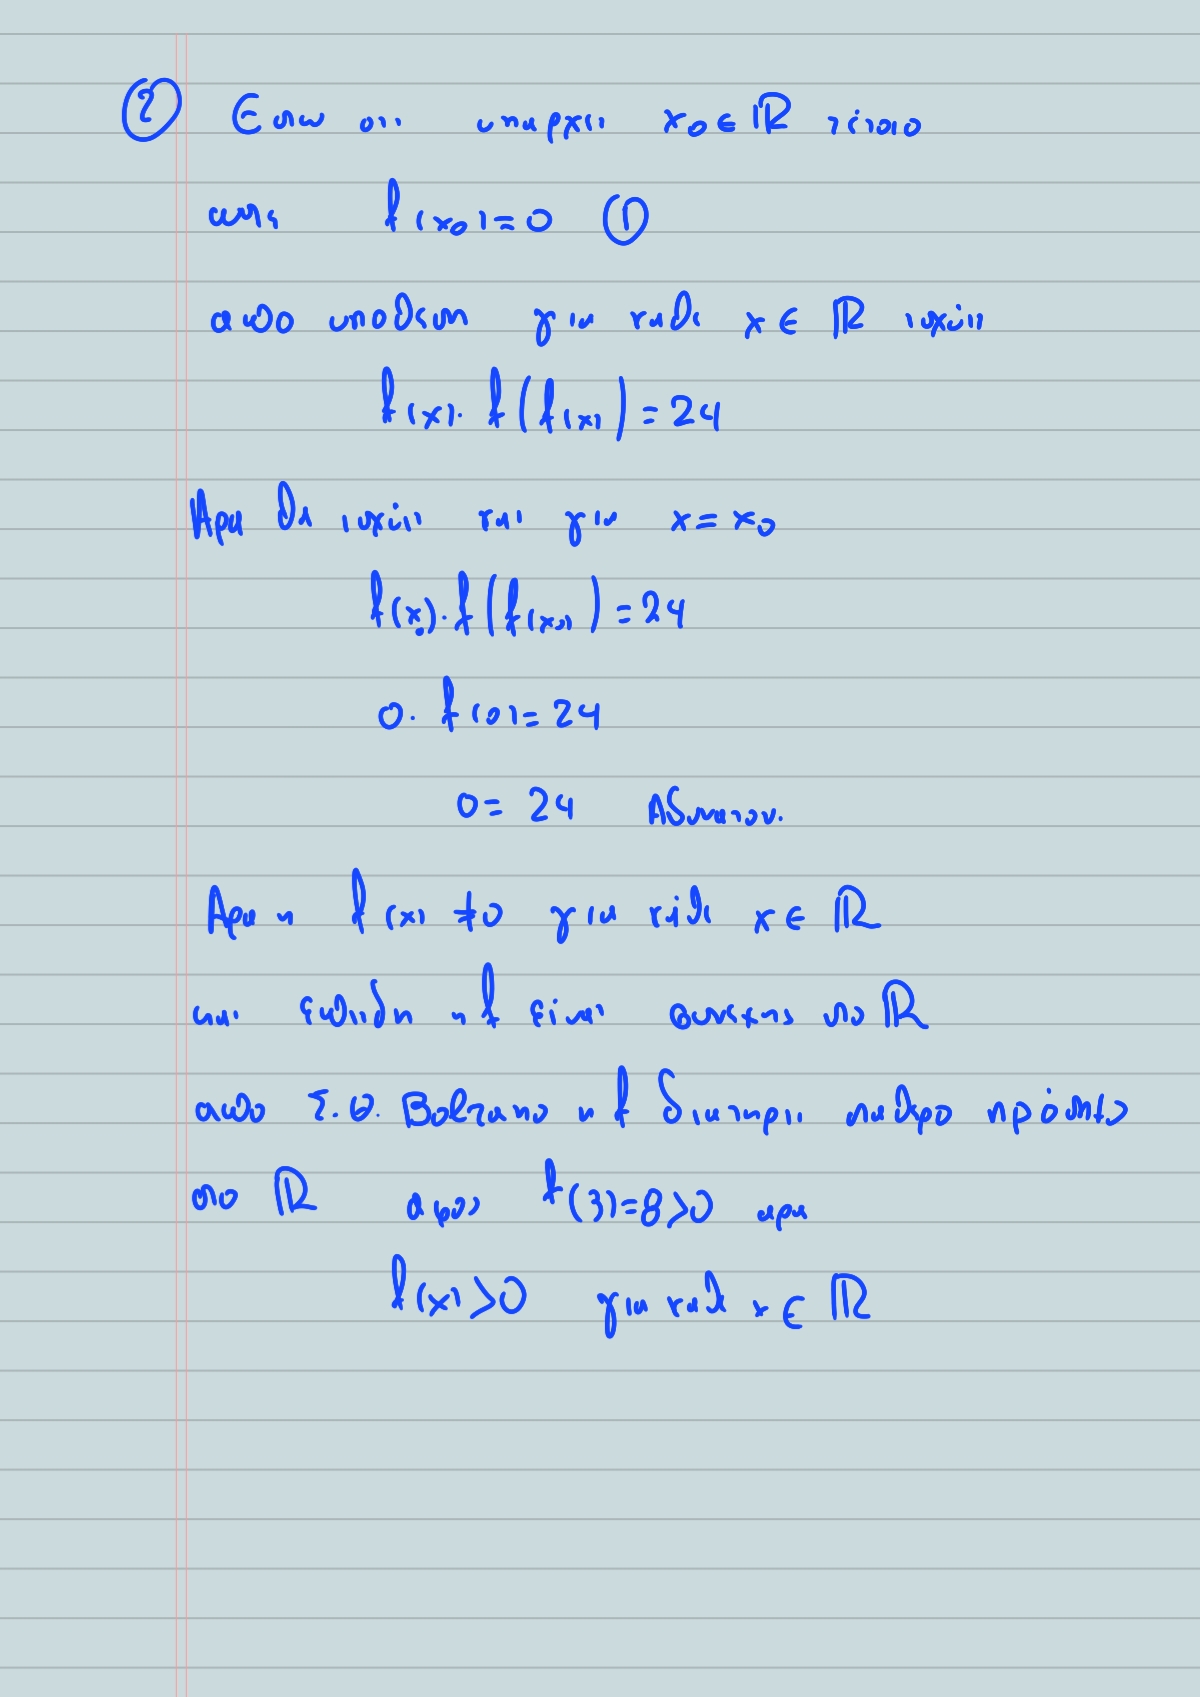 ② Εστω οτι υπαρχει x₀ ∈ ℝ τέτοιο
ωστε f(x₀)=0 ①
απο υποθεση για καθε x ∈ ℝ ισχύει
f(x)· f(f(x))=24
Αρα θα ισχύει και για x=x₀
f(x₀)·f(f(x₀))=24
0· f(0)=24
0= 24 Αδυνατον.
Αρα η f(x) ≠0 για κάθε x ∈ ℝ
και επειδη η f είναι συνεχης στο ℝ
απο Σ.Θ. Bolzano η f διατηρει σταθερο πρόσημο
στο ℝ αφου f(3)=8>0 αρα
f(x)>0 για καθε x ∈ ℝ